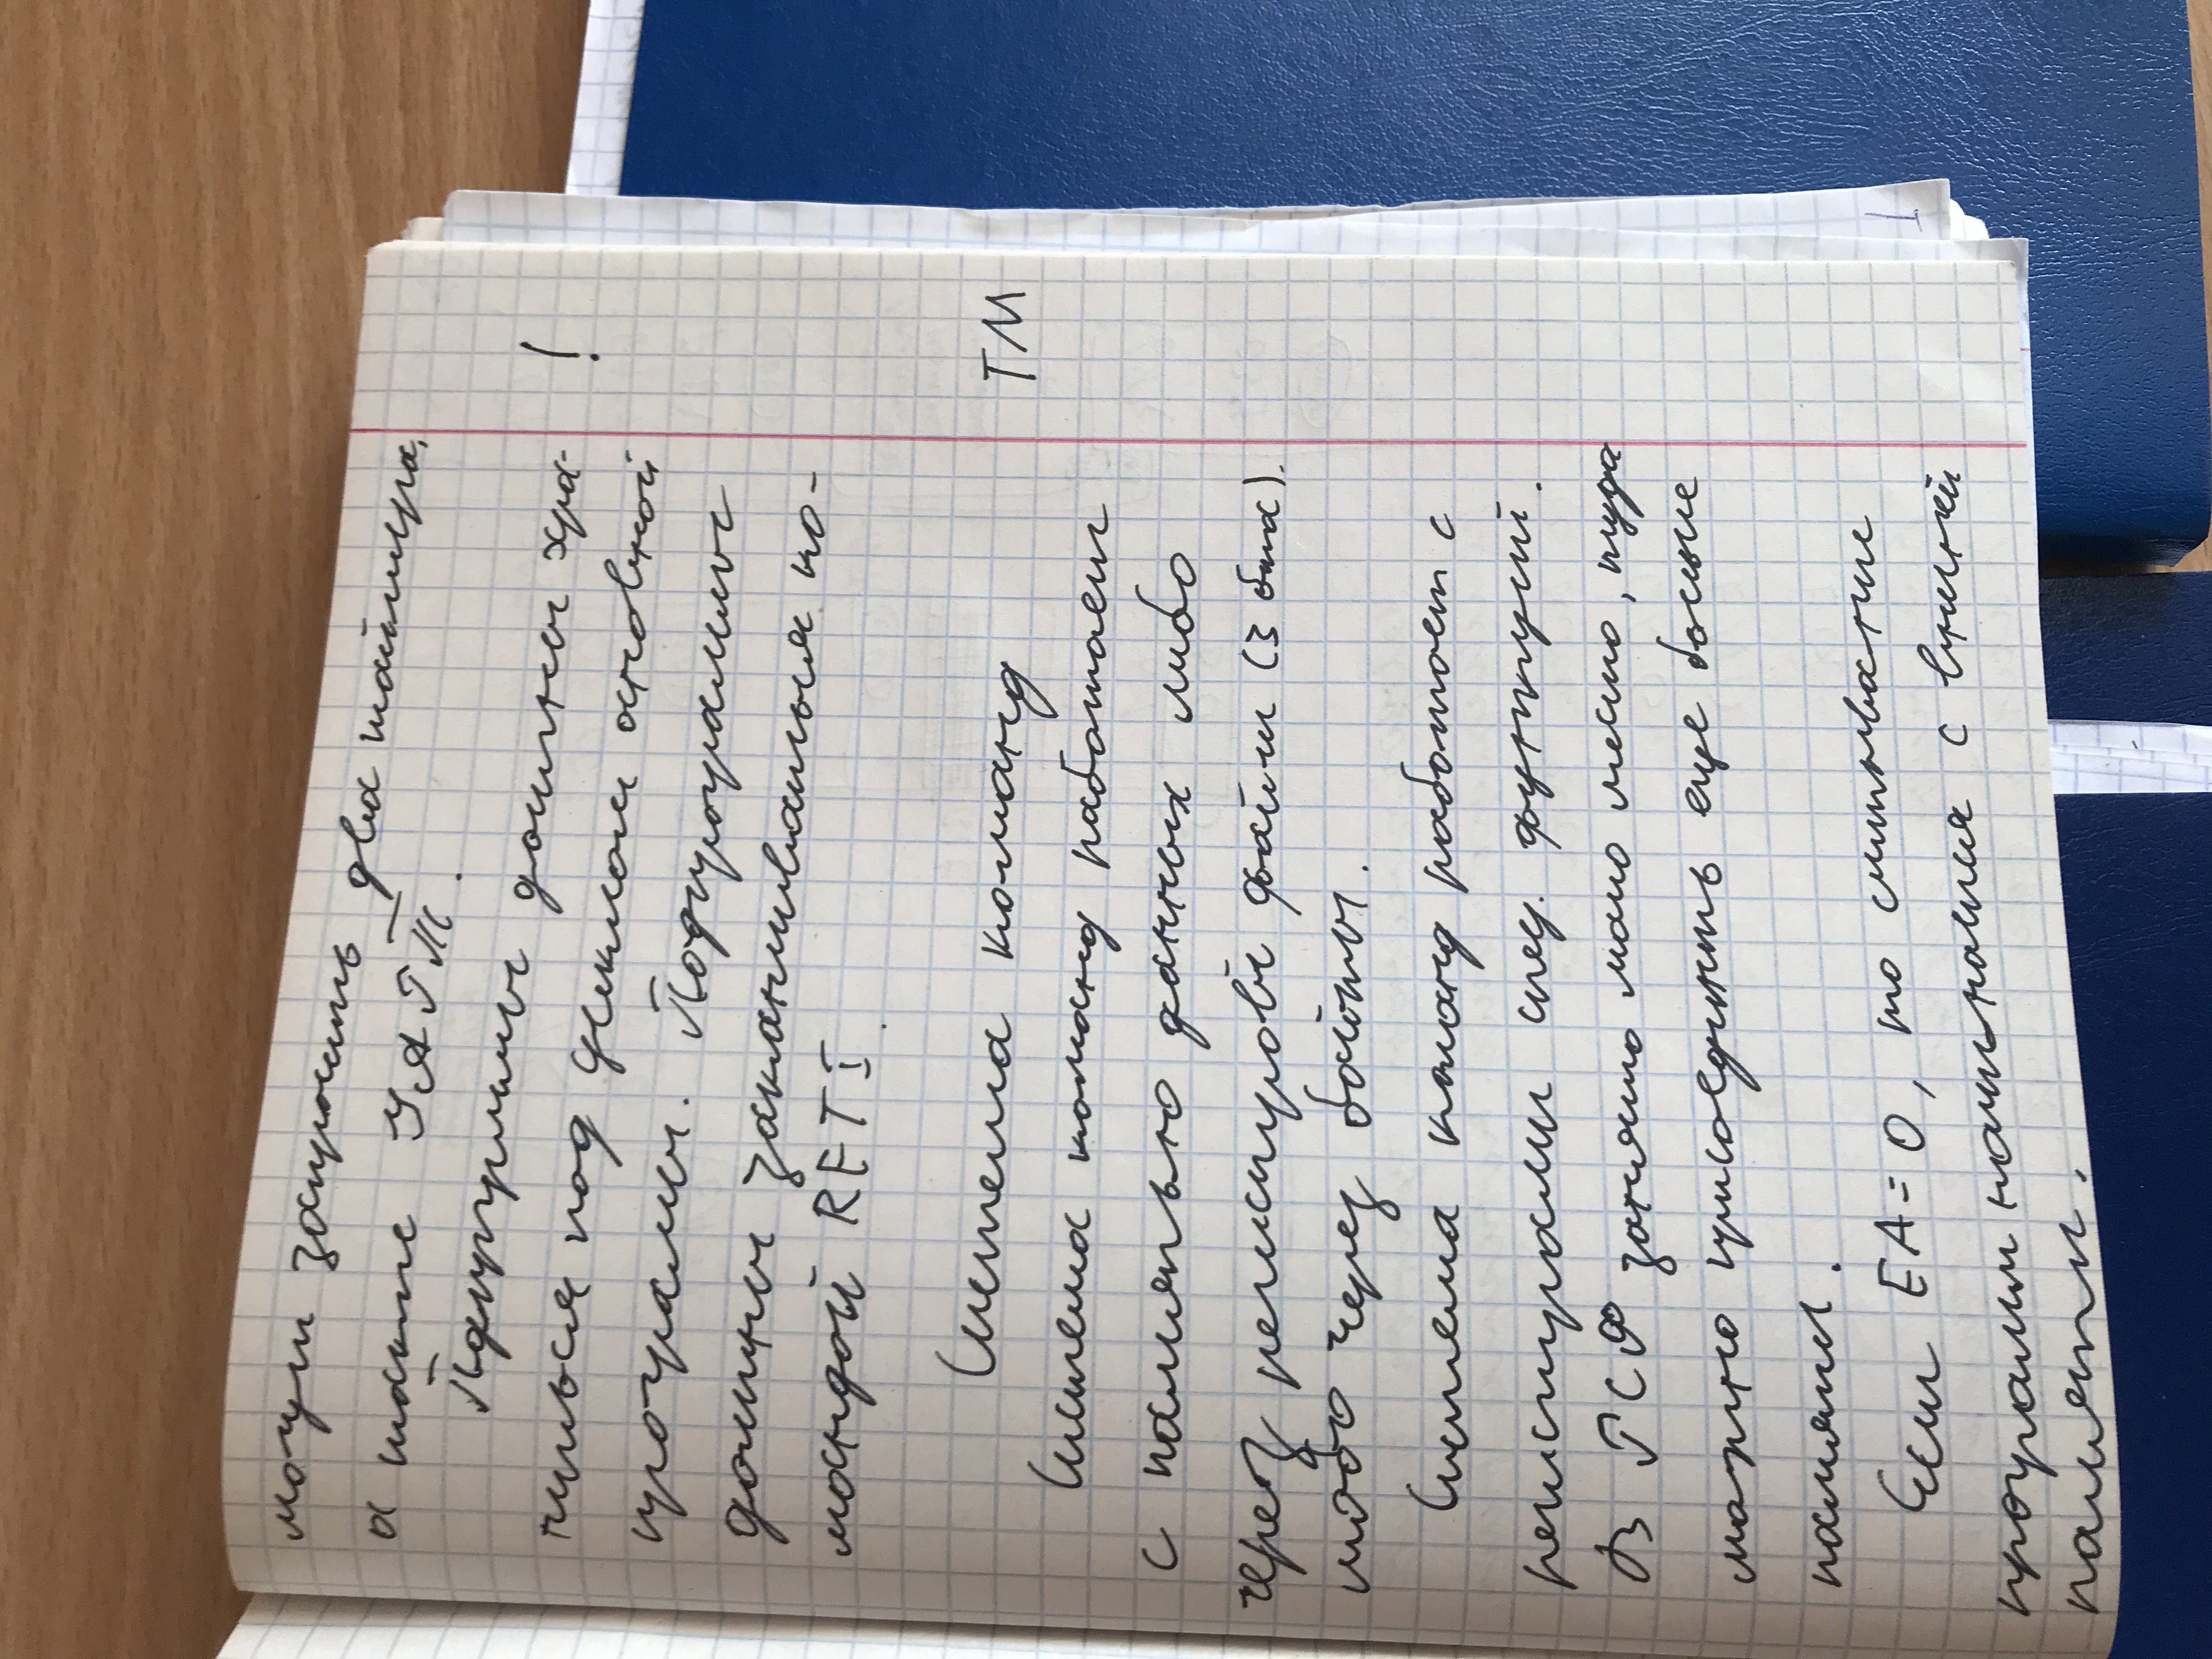 могут запросить два таймера,
а также УАПП.
Подпрограммы должны хра- !
ниться под циклом основной
программы. Подпрограммы
должны заканчиваться ко-
мандой RETI.
Система команд ТМ
Система команд работает
с памятью данных либо
через регистровый файл (3 бита).
либо через байты.
Система команд работает с
регистрами спец. функций.
В РСФ занято мало место, туда
можно присоединить еще больше
памяти.
Если EA=0, то считывание
программ начинается с внешней
памяти.